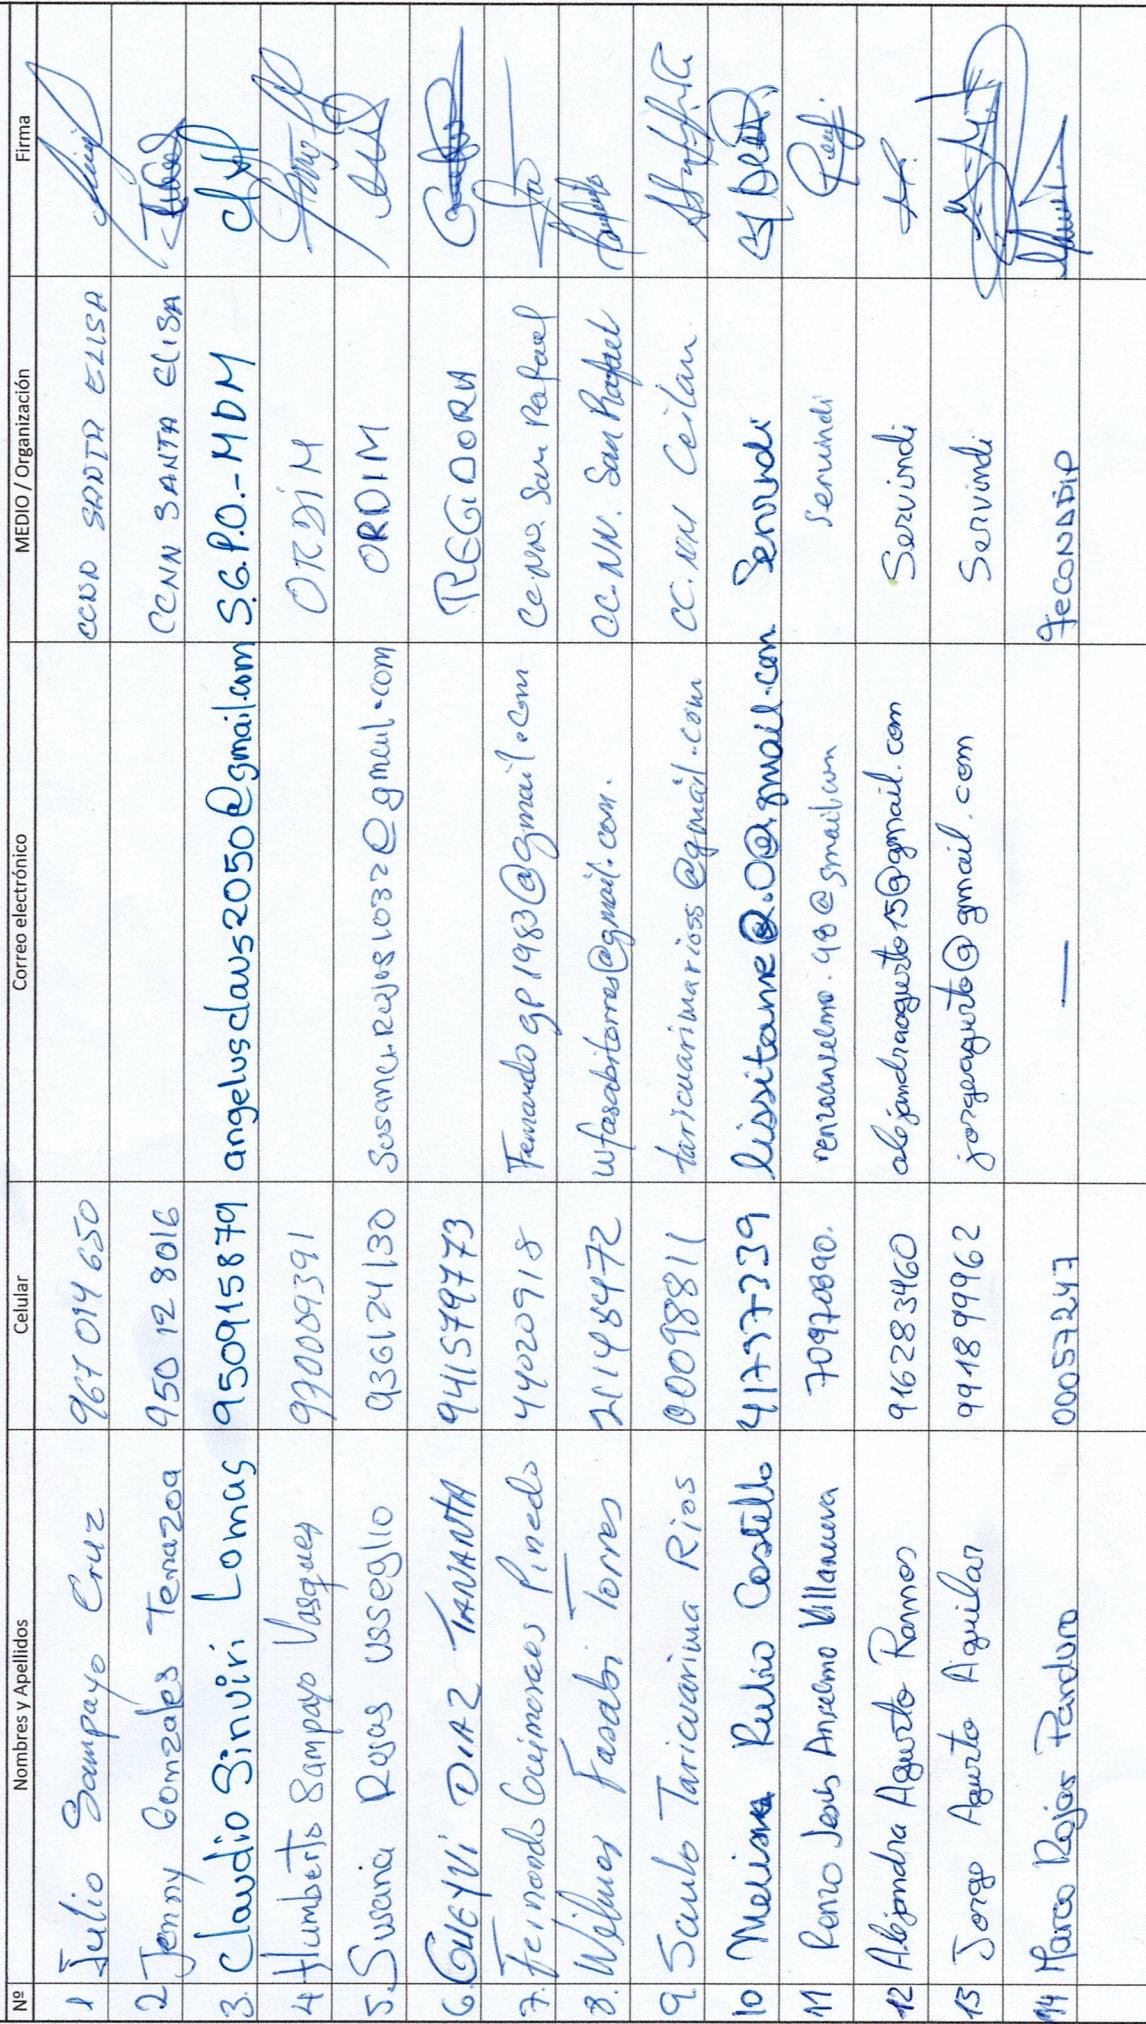 Nº Nombres y Apellidos Celular Correo electrónico MEDIO / Organización Firma
1 Julio Sampayo Cruz 967 014 650 CCNN SANTA ELISA
2 Jenny Gonzales Tenazoa 950 12 8016 CCNN SANTA ELISA
3. Claudio Sinviri Lomas 950915879 angelusclaus2050@gmail.com S.G.P.O.-MDM
4. Humberto Sampayo Vasquez 970009391 ORDIM
5. Susana Rojas Usseglio 936124130 ORDIM
6. GHEYVI DIAZ TANANTA 941579773 REGIDORA
7. Fernando Guimaraes Pinedo 44020918 Fernandogp1983@gmail.com CC.NN. San Rafael
8. Wilmer Fasabi Torres 21148472 wfasabitorres@gmail.com. CC.NN. San Rafael
9. Saulo Taricuarima Rios 00098811 taricuarimarioss@gmail.com CC.NN Ceilan
10 Melissa Rubio Castello 41737739 Servindi
11 Renzo Jesús Anselmo Villanueva 70970890. renzoanselmo.98@gmail.com Servindi
12 Alejandra Agurto Ramos 916283460 alejandraagurto15@gmail.com Servindi
13 Jorge Agurto Aguilar 991899962 jorgeagurto@gmail.com Servindi
14 Marco Rojas Panduro 00057247 — FECONADIP